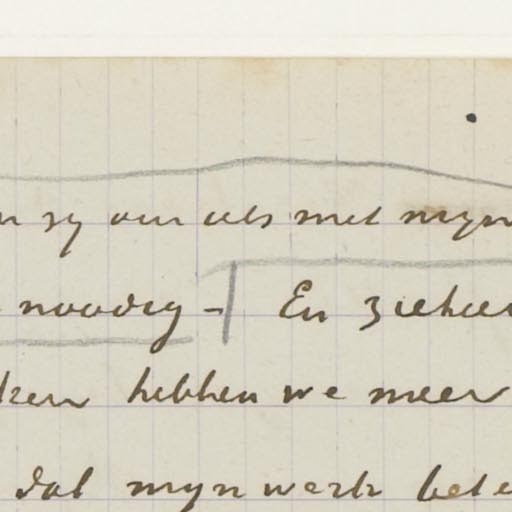 zy our als met myn
noodig - En ziehier
ken hebben we meer
dat myn werk bete